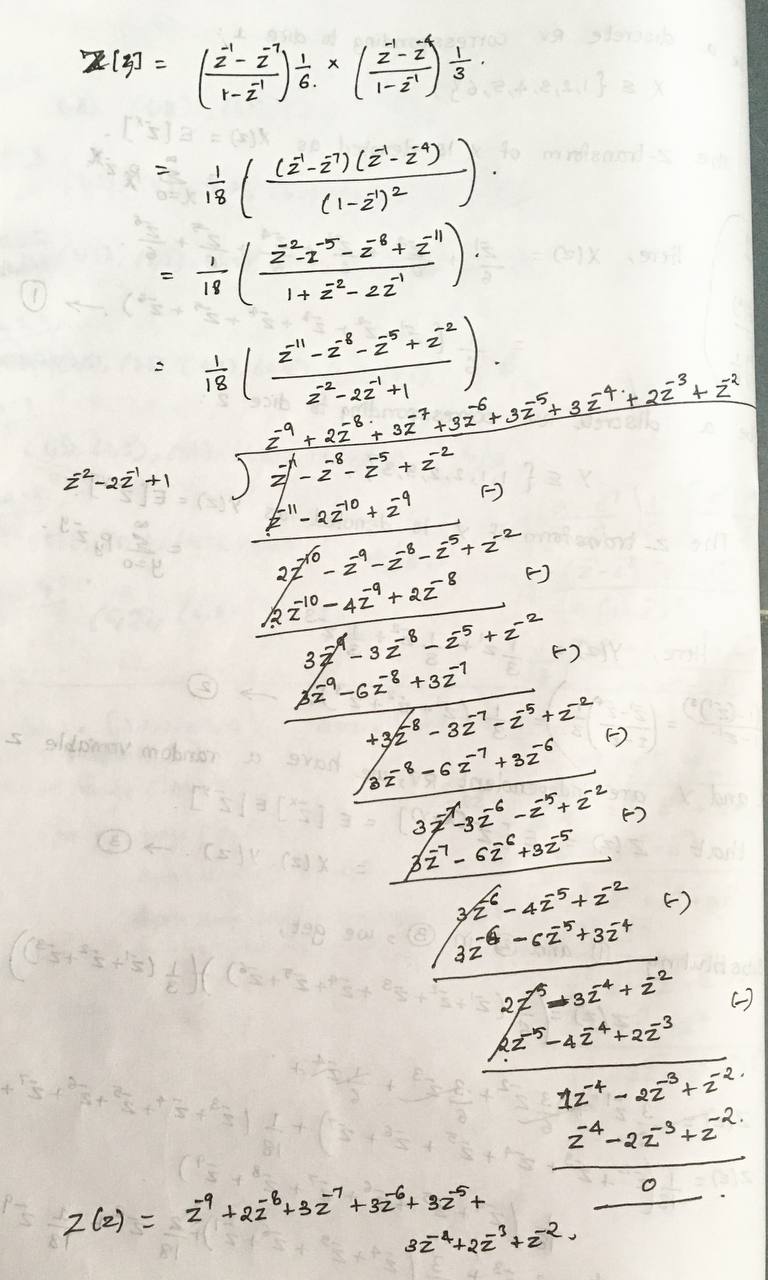 Z[z] = (z⁻¹ - z⁻⁷ / 1 - z⁻¹) 1/6. × (z⁻¹ - z⁻⁴ / 1 - z⁻¹) 1/3.
= 1/18 ( (z⁻¹ - z⁻⁷) (z⁻¹ - z⁻⁴) / (1 - z⁻¹)² ).
= 1/18 ( z⁻² - z⁻⁵ - z⁻⁸ + z⁻¹¹ / 1 + z⁻² - 2z⁻¹ ).
= 1/18 ( z⁻¹¹ - z⁻⁸ - z⁻⁵ + z⁻² / z⁻² - 2z⁻¹ + 1 ).
z⁻⁹ + 2z⁻⁸ + 3z⁻⁷ + 3z⁻⁶ + 3z⁻⁵ + 3z⁻⁴ + 2z⁻³ + z⁻²
z⁻² - 2z⁻¹ + 1 ) z⁻¹¹ - z⁻⁸ - z⁻⁵ + z⁻²
z⁻¹¹ - 2z⁻¹⁰ + z⁻⁹ (-)
2z⁻¹⁰ - z⁻⁹ - z⁻⁸ - z⁻⁵ + z⁻²
2z⁻¹⁰ - 4z⁻⁹ + 2z⁻⁸ (-)
3z⁻⁹ - 3z⁻⁸ - z⁻⁵ + z⁻²
3z⁻⁹ - 6z⁻⁸ + 3z⁻⁷ (-)
+3z⁻⁸ - 3z⁻⁷ - z⁻⁵ + z⁻²
3z⁻⁸ - 6z⁻⁷ + 3z⁻⁶ (-)
3z⁻⁷ - 3z⁻⁶ - z⁻⁵ + z⁻²
3z⁻⁷ - 6z⁻⁶ + 3z⁻⁵ (-)
3z⁻⁶ - 4z⁻⁵ + z⁻² (-)
3z⁻⁶ - 6z⁻⁵ + 3z⁻⁴
2z⁻⁵ - 3z⁻⁴ + z⁻² (-)
2z⁻⁵ - 4z⁻⁴ + 2z⁻³
1z⁻⁴ - 2z⁻³ + z⁻².
z⁻⁴ - 2z⁻³ + z⁻².
0
Z(z) = z⁻⁹ + 2z⁻⁸ + 3z⁻⁷ + 3z⁻⁶ + 3z⁻⁵ +
3z⁻⁴ + 2z⁻³ + z⁻².